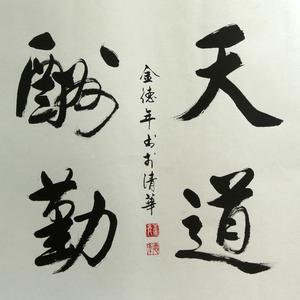 天道
酬勤
金德年书于清華